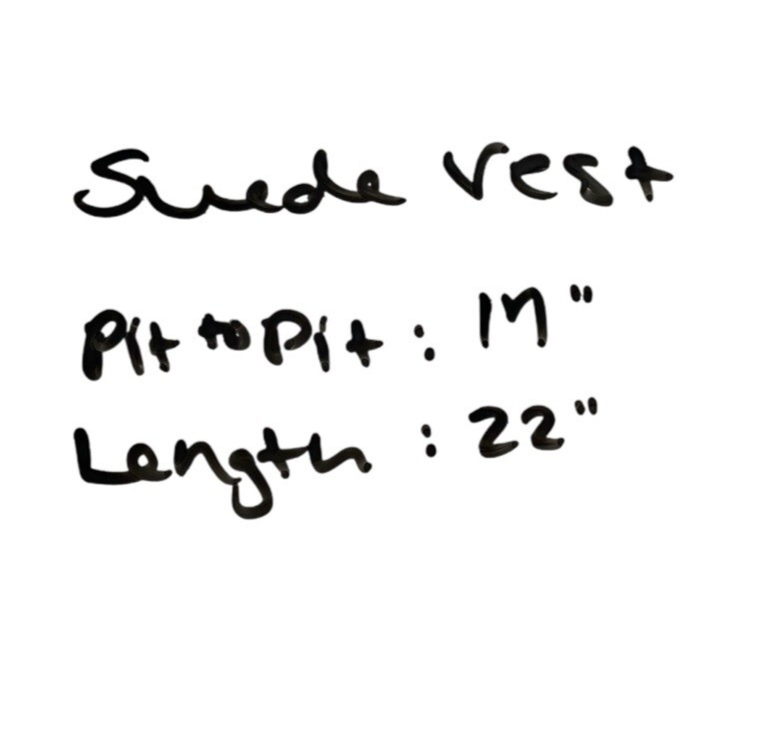 Suede Vest
Pit to Pit : 17"
Length : 22"